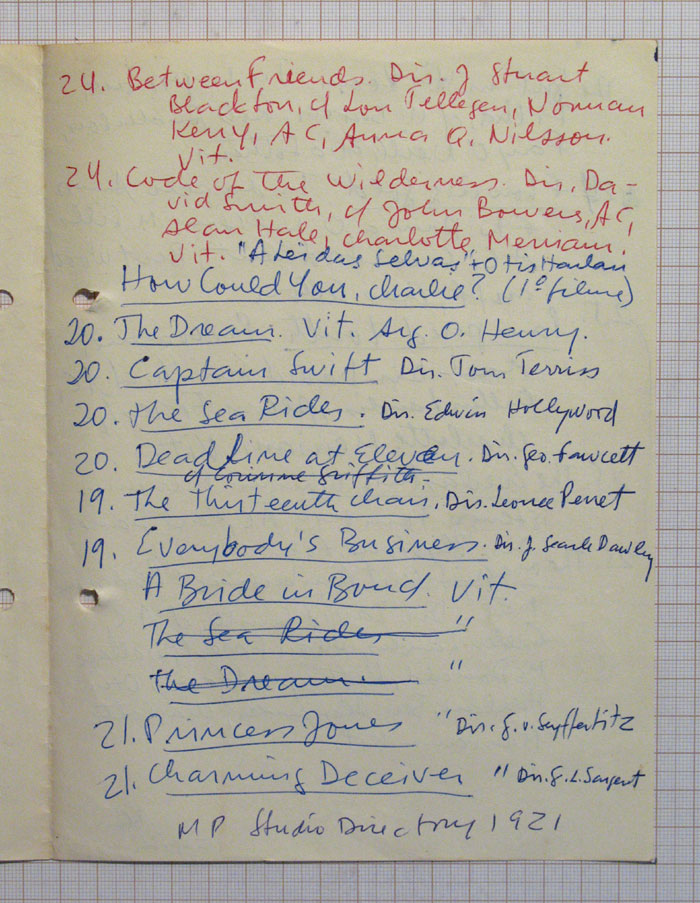 24. Between Friends. Dir. J Stuart
Blackton, c/ Lou Tellegen, Norman
Kerry, AC, Anna Q. Nilsson.
Vit.
24. Code of the Wilderness. Dir. Da-
vid Smith, c/ John Bowers, AC,
Alan Hale, Charlotte Merriam.
Vit. "A Lei das Selvas" + Otis Harlan
How Could You, Charlie? (1º filme)
20. The Dream. Vit. Arg. O. Henry.
20. Captain Swift Dir. Tom Terriss
20. The Sea Rides. Dir. Edwin Hollywood
20. Dead Line at Eleven. Dir. Geo. Fawcett
c/ Corinne Griffith.
19. The Thirteenth Chair. Dir. Leonce Perret
19. Everybody's Business. Dir. J. Searle Dawley
A Bride in Bond. Vit.
The Sea Rides "
The Dream. "
21. Princess Jones " Dir. G. v. Seyffertitz
21. Charming Deceiver " Dir. G. L. Sargent
MP Studio Directory 1921